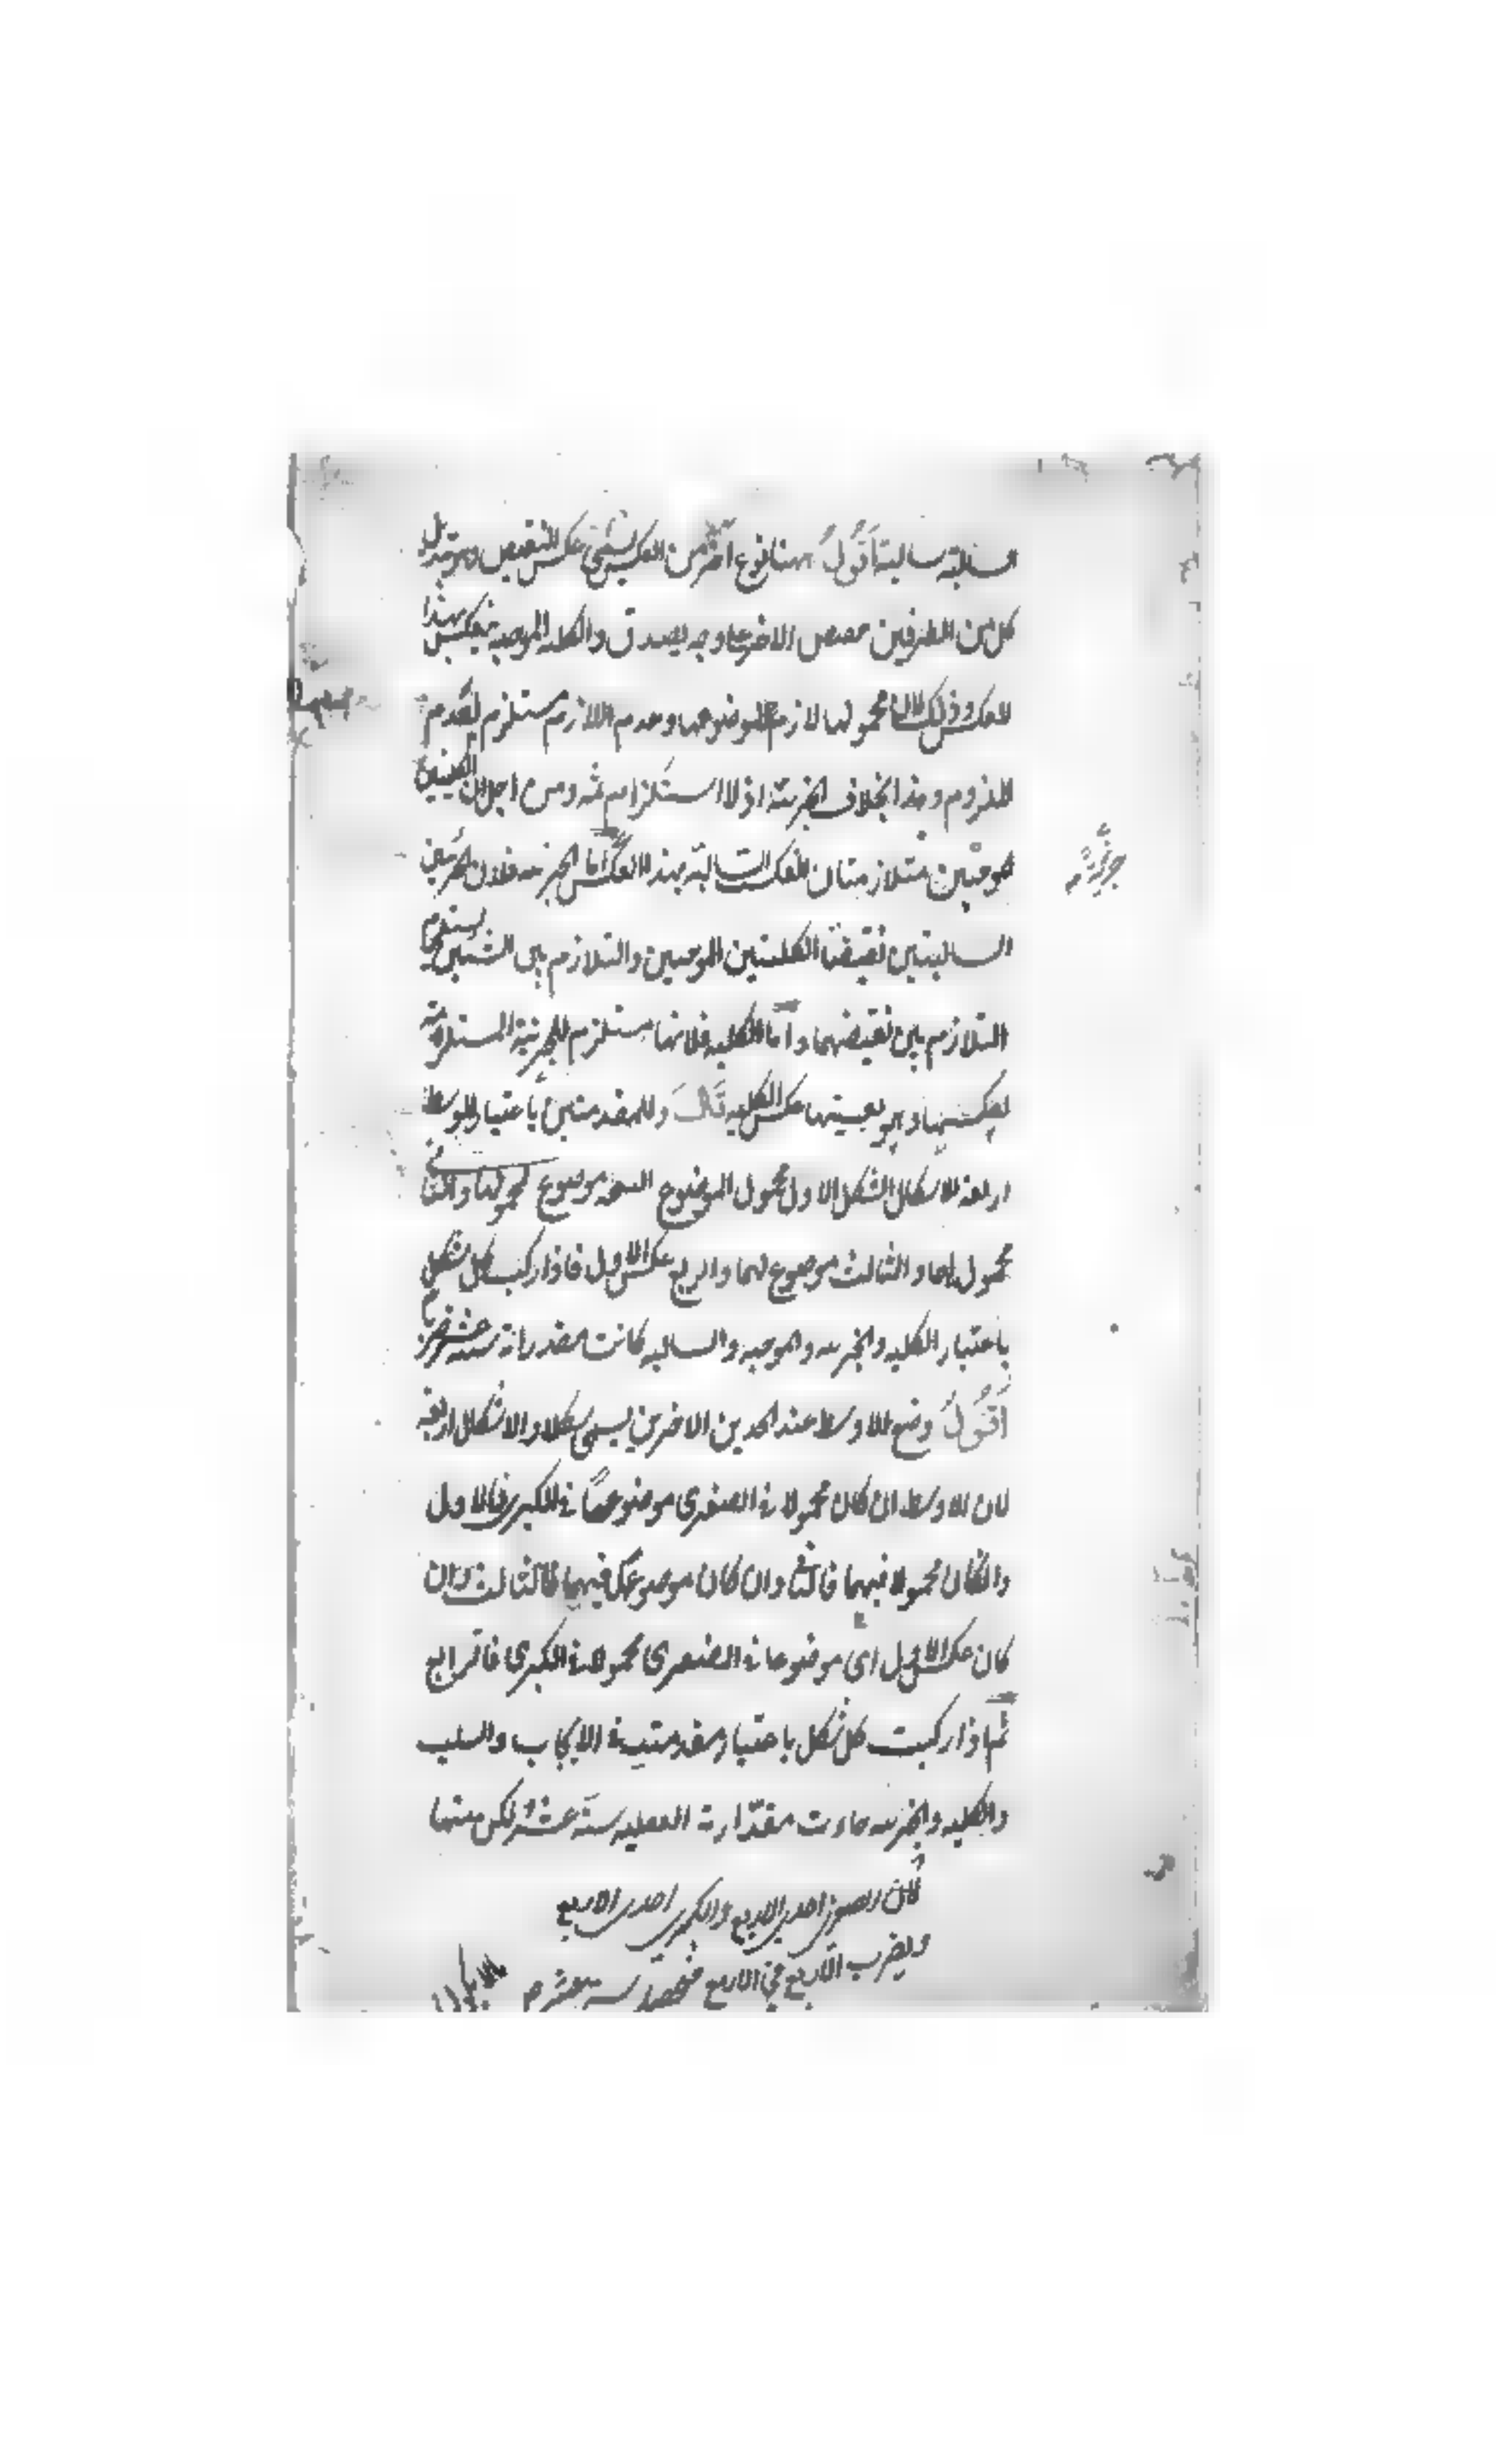 السالبة سالبة اقول ههنا نوع آخر من العكس يسمى عكس النقيض وهو تبديل
كل من الطرفين الاخر على وجه يصدق والكلية الموجبة تنعكس بهذا
العكس وذلك لان محمولها لازم لموضوعها وعدم اللازم مستلزم لعدم
الملزوم وهذا بخلاف الجزئية اذ لا استلزام ثمه ومن اجل ان الكليتين
موجبتين متلازمتان انعكست السالبة بهذا العكس اما الجزئيه فلان الجزئيتين
السالبتين نقيضتا الكليتين الموجبتين والتلازم بين الشيئين يستلزم
التلازم بين نقيضيهما واما الكليه فلانها مستلزم للجزئية المستلزمة
لعكسها وهو بعينها عكس الكليه قال وللمقدمتين باعتبار الوسط
اربعة اشكال الشكل الاول محمول لموضوع النتيجه موضوع لمحمولها والثاني
محمول لهما والثالث موضوع لهما والرابع عكس الاول فاذا ركب كل شكل
باعتبار الكليه والجزئيه والموجبه والسالبه كانت مقدراته ستة عشر ضربا
اقول وضع الاوسط عند الحدين الاخرين يسمى شكلا والاشكال اربعة
لان الاوسط ان كان محمولا في الصغرى موضوعا في الكبرى فالاول
وان كان محمولا فيهما فالثاني وان كان موضوعا فيهما فالثالث وان
كان عكس الاول اى موضوعا في الصغرى محمولا في الكبرى فالرابع
ثم اذا ركبت كل شكل باعتبار مقدمتيه في الايجاب والسلب
والكليه والجزئيه جاءت مقدراته العقليه ستة عشر لكن منها
لان الصغرى احدى الاربع والكبرى احدى الاربع
ويضرب الاربع في الاربع فيحصل ستة عشر
جزئية